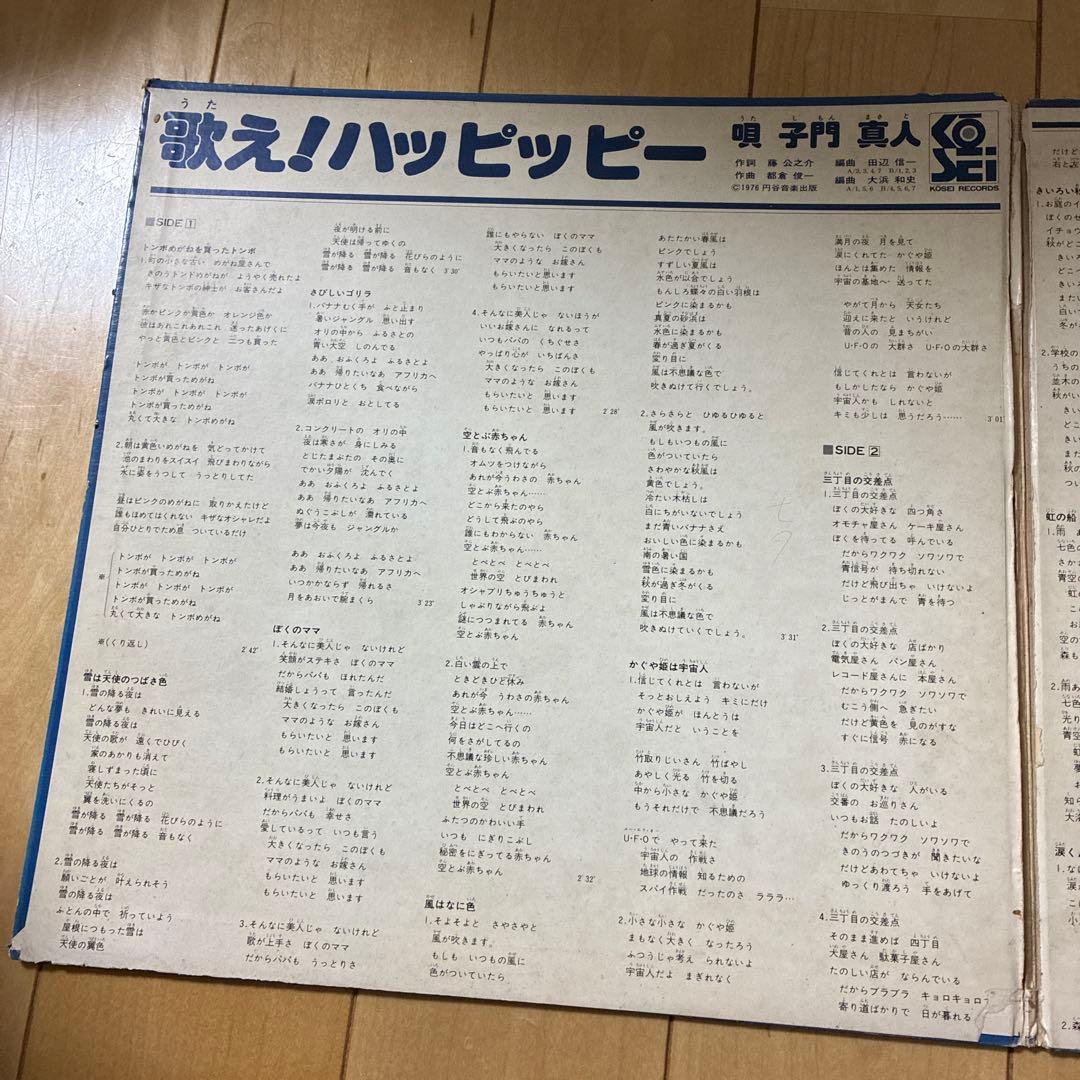 歌え!ハッピッピー
唄 子門 真人
作詞 藤 公之介 編曲 田辺 信一
A/2,3,4,7 B/1,2,3
作曲 都倉 俊一 編曲 大浜 和史
A/1,5,6 B/4,5,6,7
©1976 円谷音楽出版
KOSEI
KOSEI RECORDS
■SIDE 1
トンボめがねを買ったトンボ
1.町の小さな古い めがね屋さんで
きのうトンドめがねが ようやく売れたよ
キザなトンボの紳士が お客さんだよ
赤かピンクか黄色か オレンジ色か
彼はあれこれあれこれ 迷ったあげくに
やっと黄色とピンクと 二つも買った
トンボが トンボが トンボが
トンボが買っためがね
トンボが トンボが トンボが
トンボが買っためがね
丸くて大きな トンボめがね
2.朝は黄色いめがねを 気どってかけて
池のまわりをスイスイ 飛びまわりながら
水に姿をうつして うっとりしてた
昼はピンクのめがねに 取りかえたけど
誰もほめてはくれない キザなオシャレだよ
自分ひとりでため息 ついているだけ
※
トンボが トンボが トンボが
トンボが買っためがね
トンボが トンボが トンボが
トンボが買っためがね
丸くて大きな トンボめがね
※(くり返し) 2'42"
雪は天使のつばさ色
1.雪の降る夜は
どんな夢も きれいに見える
雪の降る夜は
天使の歌が 遠くでひびく
家のあかりも消えて
寝しずまった頃に
天使たちがそっと
翼を洗いにくるの
雪が降る 雪が降る 花びらのように
雪が降る 雪が降る 音もなく
2.雪の降る夜は
願いごとが 叶えられそう
雪の降る夜は
ふとんの中で 祈っていよう
屋根につもった雪は
天使の翼色
夜が明ける前に
天使は帰ってゆくの
雪が降る 雪が降る 花びらのように
雪が降る 雪が降る 音もなく 3'30"
さびしいゴリラ
1.バナナむく手が ふと止まり
暑いジャングル 思い出す
オリの中から ふるさとの
青い大空 しのんでる
ああ おふくろよ ふるさとよ
ああ 帰りたいなあ アフリカへ
バナナひとくち 食べながら
涙ポロリと おとしてる
2.コンクリートの オリの中
夜は寒さが 身にしみる
とじたまぶたの その奥に
でかい夕陽が 沈んでく
ああ おふくろよ ふるさとよ
ああ 帰りたいなあ アフリカへ
ぬぐうこぶしが 濡れている
夢は今夜も ジャングルか
ああ おふくろよ ふるさとよ
ああ 帰りたいなあ アフリカへ
いつかかならず 帰れるさ
月をあおいで腕まくら 3'23"
ぼくのママ
1.そんなに美人じゃ ないけれど
笑顔がステキさ ぼくのママ
だからパパも ほれたんだ
結婚しようって 言ったんだ
大きくなったら このぼくも
ママのような お嫁さん
もらいたいと 思います
もらいたいと 思います
2.そんなに美人じゃ ないけれど
料理がうまいよ ぼくのママ
だからパパも 幸せさ
愛しているって いつも言う
大きくなったら このぼくも
ママのような お嫁さん
もらいたいと 思います
もらいたいと 思います
3.そんなに美人じゃ ないけれど
歌が上手さ ぼくのママ
だからパパも うっとりさ
誰にもやらない ぼくのママ
大きくなったら このぼくも
ママのような お嫁さん
もらいたいと 思います
もらいたいと 思います
4.そんなに美人じゃ ないほうが
いいお嫁さんに なれるって
いつもパパの くちぐせさ
やっぱり心が いちばんさ
大きくなったら このぼくも
ママのような お嫁さん
もらいたいと 思います
もらいたいと 思います 2'28"
空とぶ赤ちゃん
1.音もなく飛んでる
オムツをつけながら
あれが今うわさの 赤ちゃん
空とぶ赤ちゃん……
どこから来たのやら
どうして飛ぶのやら
誰にもわからない 赤ちゃん
空とぶ赤ちゃん……
とべとべ とべとべ
世界の空 とびまわれ
オシャブリちゅうちゅうと
しゃぶりながら飛ぶよ
謎につつまれてる 赤ちゃん
空とぶ赤ちゃん
2.白い雲の上で
ときどきひと休み
あれが今 うわさの赤ちゃん
空とぶ赤ちゃん……
今日はどこへ行くの
何をさがしてるの
不思議な珍しい赤ちゃん
空とぶ赤ちゃん
とべとべ とべとべ
世界の空 とびまわれ
ふたつのかわいい手
いつも にぎりこぶし
秘密をにぎってる赤ちゃん
空とぶ赤ちゃん 2'32"
風はなに色
1.そよそよと さやさやと
風が吹きます。
もしも いつもの風に
色がついていたら
あたたかい春風は
ピンクでしょう
すずしい夏風は
水色が似合でしょう
もんしろ蝶々の白い羽根は
ピンクに染まるかも
真夏の砂浜は
水色に染まるかも
春が過ぎ夏がくる
変り目に
風は不思議な色で
吹きぬけて行くでしょう。
2.さらさらと ひゆるひゆると
風が吹きます。
もしもいつもの風に
色がついていたら
さわやかな秋風は
黄色でしょう。
冷たい木枯しは
白にちがいないでしょう
まだ青いバナナさえ
おいしい色に染まるかも
南の暑い国
雪色に染まるかも
秋が過ぎ冬がくる
変り目に
風は不思議な色で
吹きぬけていくでしょう。 3'31"
かぐや姫は宇宙人
1.信じてくれとは 言わないが
そっとおしえよう キミにだけ
かぐや姫が ほんとうは
宇宙人だと いうことを
竹取りじいさん 竹ばやし
あやしく光る 竹を切る
中から小さな かぐや姫
もうそれだけで 不思議だろう
U・F・Oで やって来た
宇宙人の 作戦さ
地球の情報 知るための
スパイ作戦 だったのさ ラララ…
2.小さな小さな かぐや姫
まもなく大きく なったろう
ふつうじゃ考え られないよ
宇宙人だよ まぎれなく
満月の夜 月を見て
涙にくれてた かぐや姫
ほんとは集めた 情報を
宇宙の基地へ 送ってた
やがて月から 天女たち
迎えに来たと いうけれど
昔の人の 見まちがい
U・F・Oの大群さ U・F・Oの大群さ
信じてくれとは 言わないが
もしかしたなら かぐや姫
宇宙人かも しれないと
キミも少しは 思うだろう…… 3'01"
■SIDE 2
三丁目の交差点
1.三丁目の交差点
ぼくの大好きな 四つ角さ
オモチャ屋さん ケーキ屋さん
ぼくを待ってる 呼んでいる
だからワクワク ソワソワで
青信号が 待ち切れない
だけど飛び出ちゃ いけないよ
じっとがまんで 青を待つ
2.三丁目の交差点
ぼくの大好きな 店ばかり
電気屋さん パン屋さん
レコード屋さんに 本屋さん
だからワクワク ソワソワで
むこう側へ 急ぎたい
だけど黄色を 見のがすな
すぐに信号 赤になる
3.三丁目の交差点
ぼくの大好きな 人がいる
交番の お巡りさん
いつもお話 たのしいよ
だからワクワク ソワソワで
きのうのつづきが 聞きたいな
だけどあわてちゃ いけないよ
ゆっくり渡ろう 手をあげて
4.三丁目の交差点
そのまま進めば 四丁目
犬屋さん 駄菓子屋さん
たのしい店が ならんでいる
だからブラブラ キョロキョロう
寄り道ばかりで 日が暮れる
だけど
右と左
きいろい秋
1.お庭のイ
ぼくのせ
イチョウ
秋がどこ
白い
冬が
2.学校の
うちの
並木の
秋がい
虹の船
1.雨
七色の
青空
虹の
空の
森も
2.雨あ
七色
光り
青空
夢
知ら
大
涙くん
1.な
涙
小
2.森